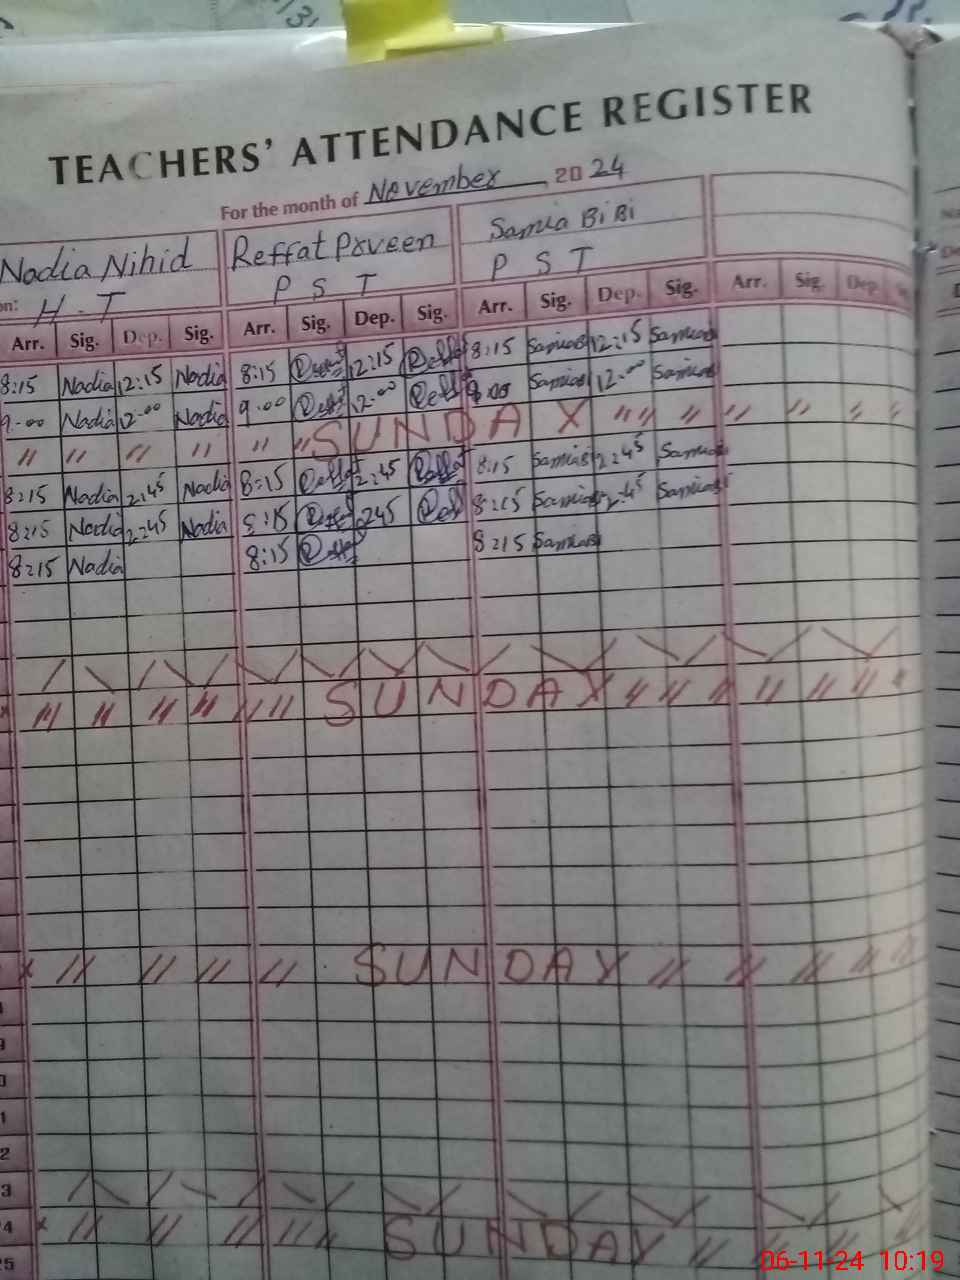 TEACHERS' ATTENDANCE REGISTER
For the month of November 2024
Nadia Nihid Reffat Prveen Samia BiBi
on: H-T P S T P S T
Arr. Sig. Dep. Sig. Arr. Sig. Dep. Sig. Arr. Sig. Dep. Sig. Arr. Sig. Dep.
8:15 Nadia 12:15 Nadia 8:15 12:15 Reffat 8:15 Samia 12:15 Samia
9.00 Nadia 12.00 Nadia 9.00 Reffat 12.00 Reffat 9.00 Samia 12.00 Samia
" " " " " " SUNDAY " " " " " " "
8:15 Nadia 2:45 Nadia 8:15 Reffat 2:45 Reffat 8:15 Samia 2:45 Samia
8:15 Nadia 2:45 Nadia 8:15 Reffat 2:45 Reffat 8:15 Samia 2:45 Samia
8:15 Nadia 8:15 Reffat 8:15 Samia
" " " " " " SUNDAY " " " " " "
" " " " SUNDAY " " " " "
9
0
1
2
3
4 " " " " SUNDAY " " "
5
06-11-24 10:19